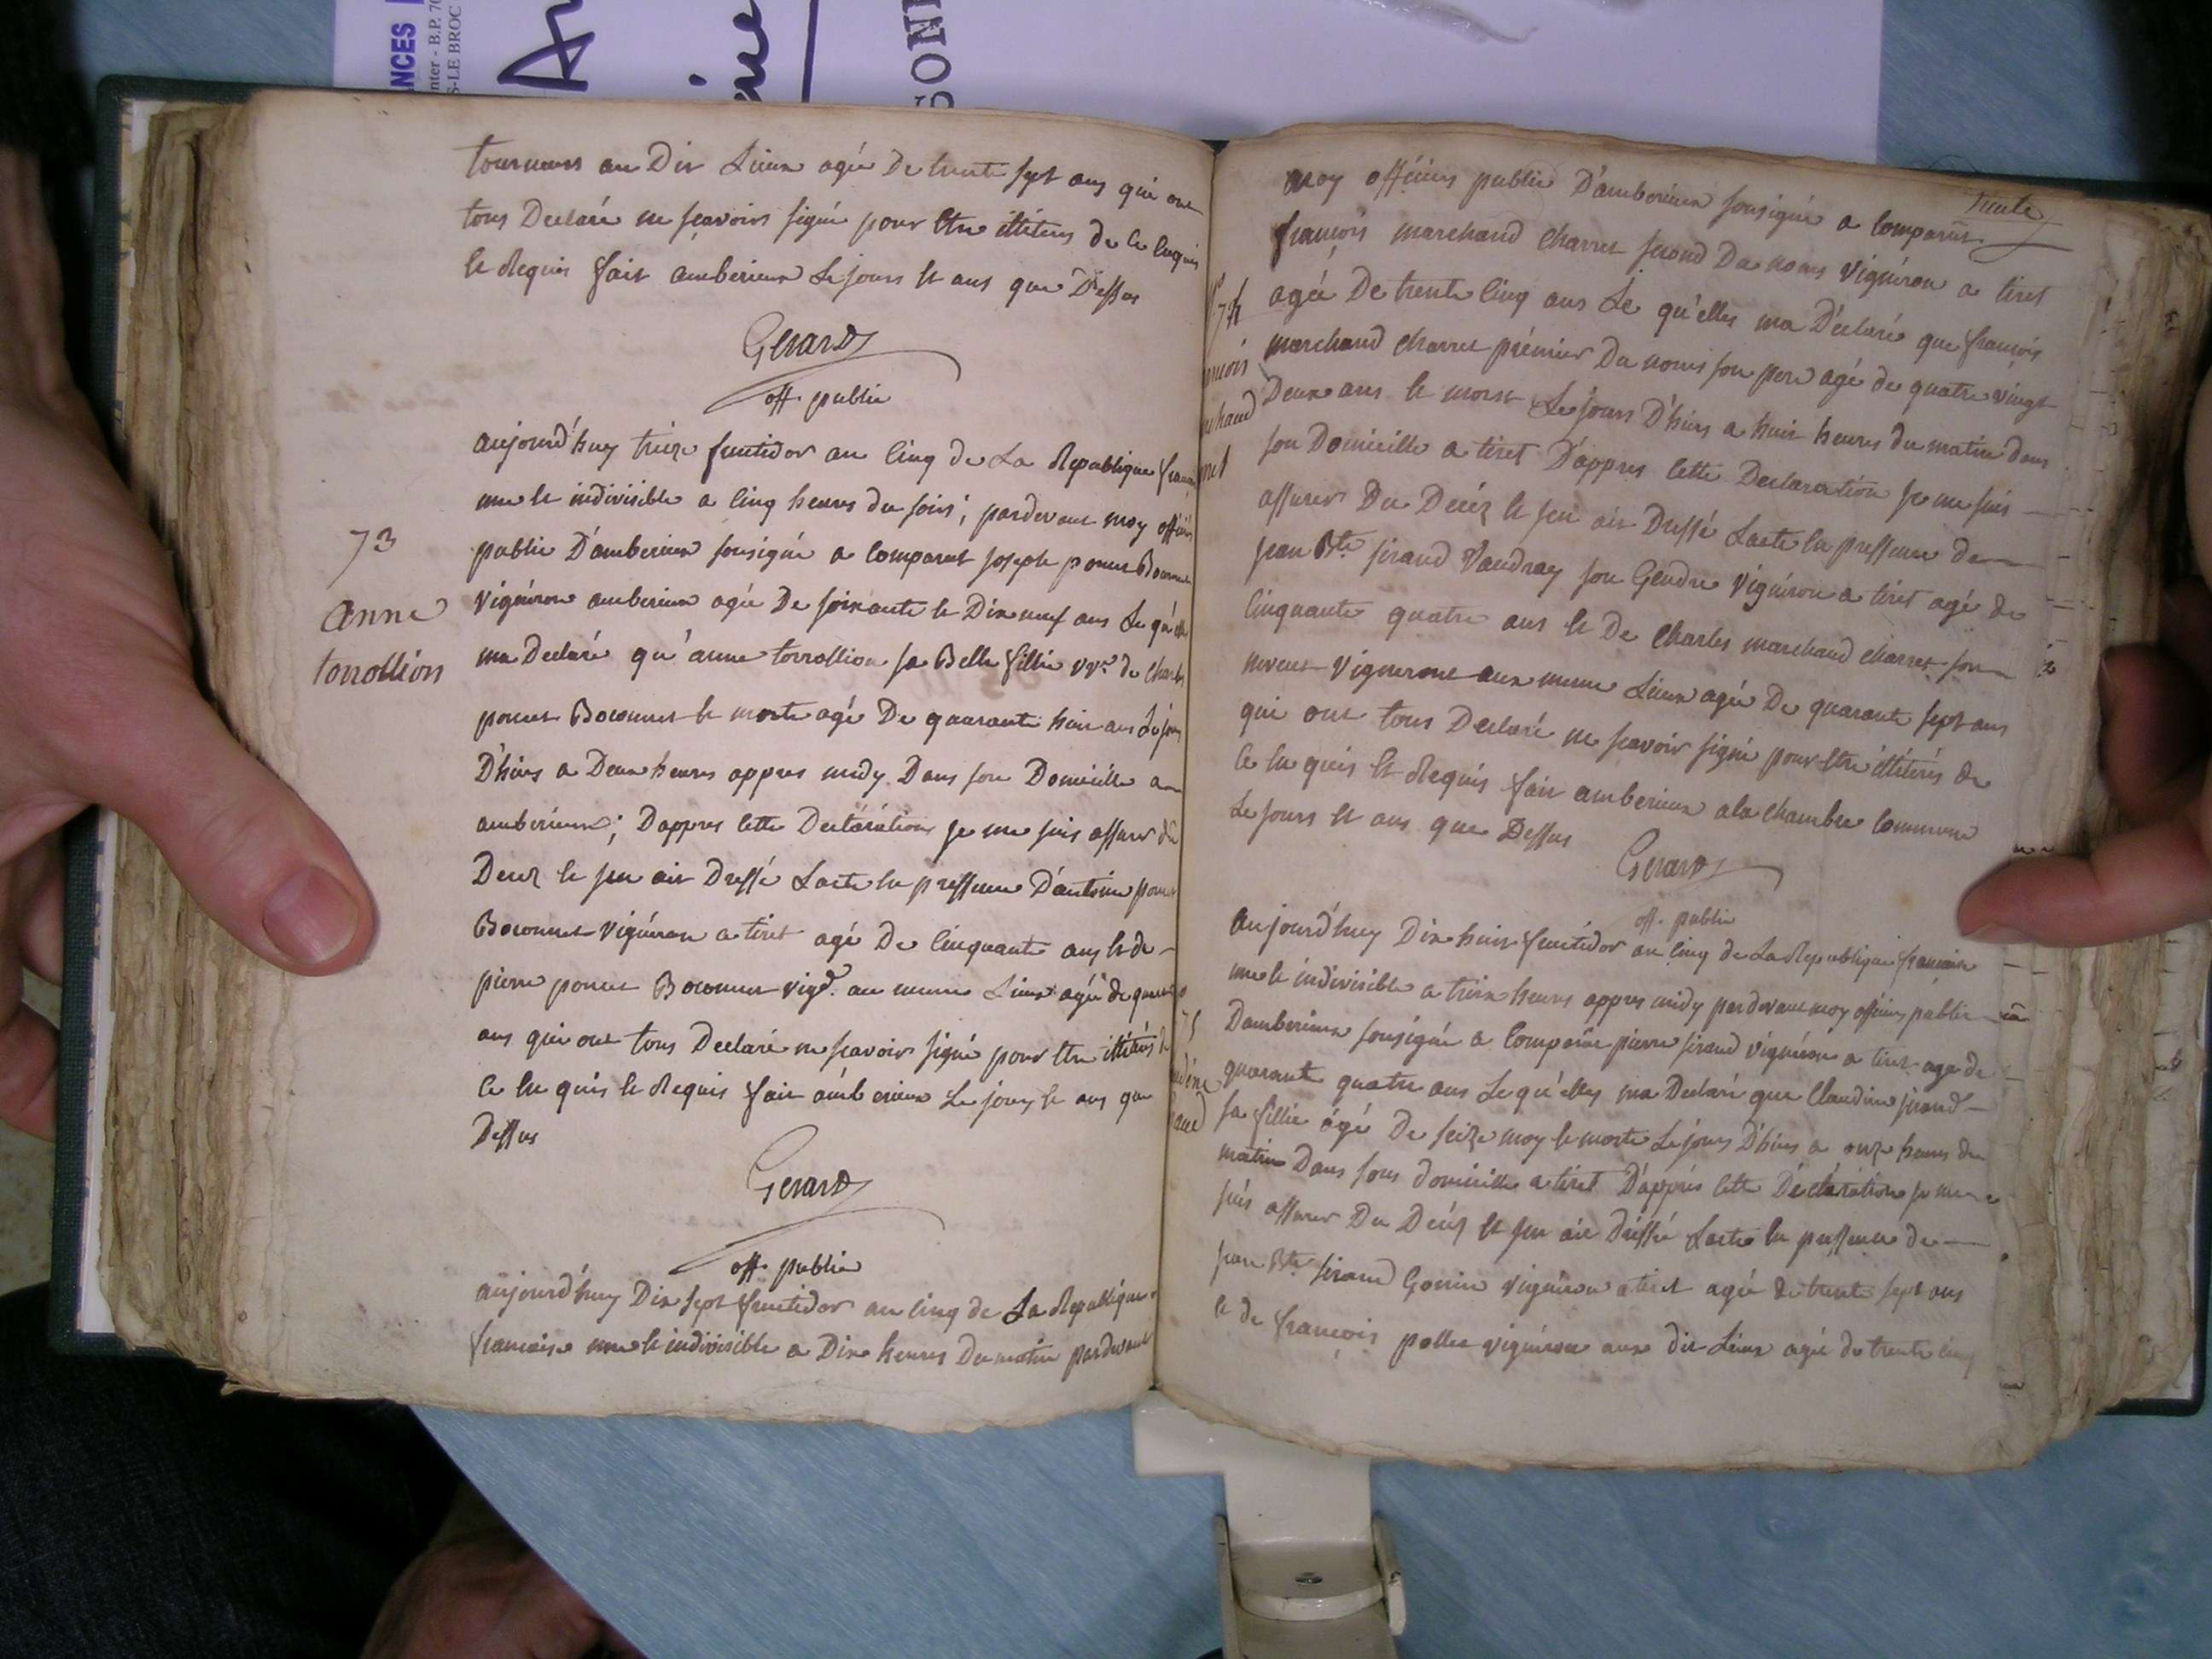 NCES
nter - B.P. 70
S-LE BROC
SON
tourneurs au Dit Lieux agée De trente sept ans qui ont
tous Declaré ne sçavoirs signé pour Etre illitérés de Ce Enquis
Et Requis fait ambérieux Le jours Et ans que Dessus
Gerard
off. public
aujourd'huy treize fructidor an Cinq de La Republique
une Et indivisible a Cinq heures du soirs; pardevant moy
public D'amberieux sousigné a Comparut joseph poncet
73
anne
torrollion
vignérons amberieux agée De soixante Et Dix neuf ans Le
ma Declaré qu'anne torrollion sa Belle fillie vve de Charles
poncet Boconnet Et morte agé De quarante huit ans Le jours
D'hiers a Deux heures appres midy Dans son Domicille a
amberieux; Dappres Cette Declération je me suis assurer du
Decez Et jen ait Dressé Lacte En pressence D'antoine poncet
Boconnet vignéron a tiret agé De Cinquante ans Et de
pierre poncet Boconnet vigd. au meme Lieux agée de
ans qui ont tous Declaré ne scavoir signé pour Etre illitérés
Ce En quis Et Requis fait ambérieux Le jours Et ans que
Dessus
Gerard
off. public
aujourd'huy Dix sept fructidor an Cinq de La Republique
francaise une Et indivisible a Dix heures Du matin pardevant
trente
moy officiers public D'amberieux sousigné a Comparut
françois marchand Charret second Du noms vignéron a tiret
74
agée De trente Cinq ans Le qu'elles ma Déclaré que françois
marchand Charret prémier Du noms son pere agé de quatre vingt
Deux ans Et morst Le jours D'hiers a huit heures du matin dans
son Domicille a tiret D'appres Cette Declaration je me suis
assurer Du Decéz Et jen ait Dressé Lacte En pressence de
jean Bte sirand Vaudray son Gendre vignéron a tiret agé de
Cinquante quatre ans Et De Charles marchand Charret son
neveux Vignerone aux meme Lieux agée De quarante sept ans
qui ont tous Declaré ne scavoir signé pour Etre illitérés de
Ce En quis Et Requis fait amberieux a la Chambre Commune
Le jours Et ans que Dessus
Gerard
off. public
aujourd'huy Dix huit fructidor an Cinq de La Republique francaise
une Et indivisible a troix heures appres midy pardevant moy officiers public
75
Damberieux sousigné a Comparut pierre sirand vignéron a tiret agé de
quarante quatre ans Le qu'elles ma Declaré que Claudine sirand
sa fillie ágé De seize moy Et morte Le jours D'hiers a onze heures du
matin Dans sons domicille a tiret D'apprés Cette Déclaration je me
suis assurer Du Decéz Et jen ait Dressé Lacte En pressence de
jean Bte sirand Gonin vignéron a tiret agée de trente sept ans
Et de françois pollet vignéron aux dit Lieux agé de trente Cinq